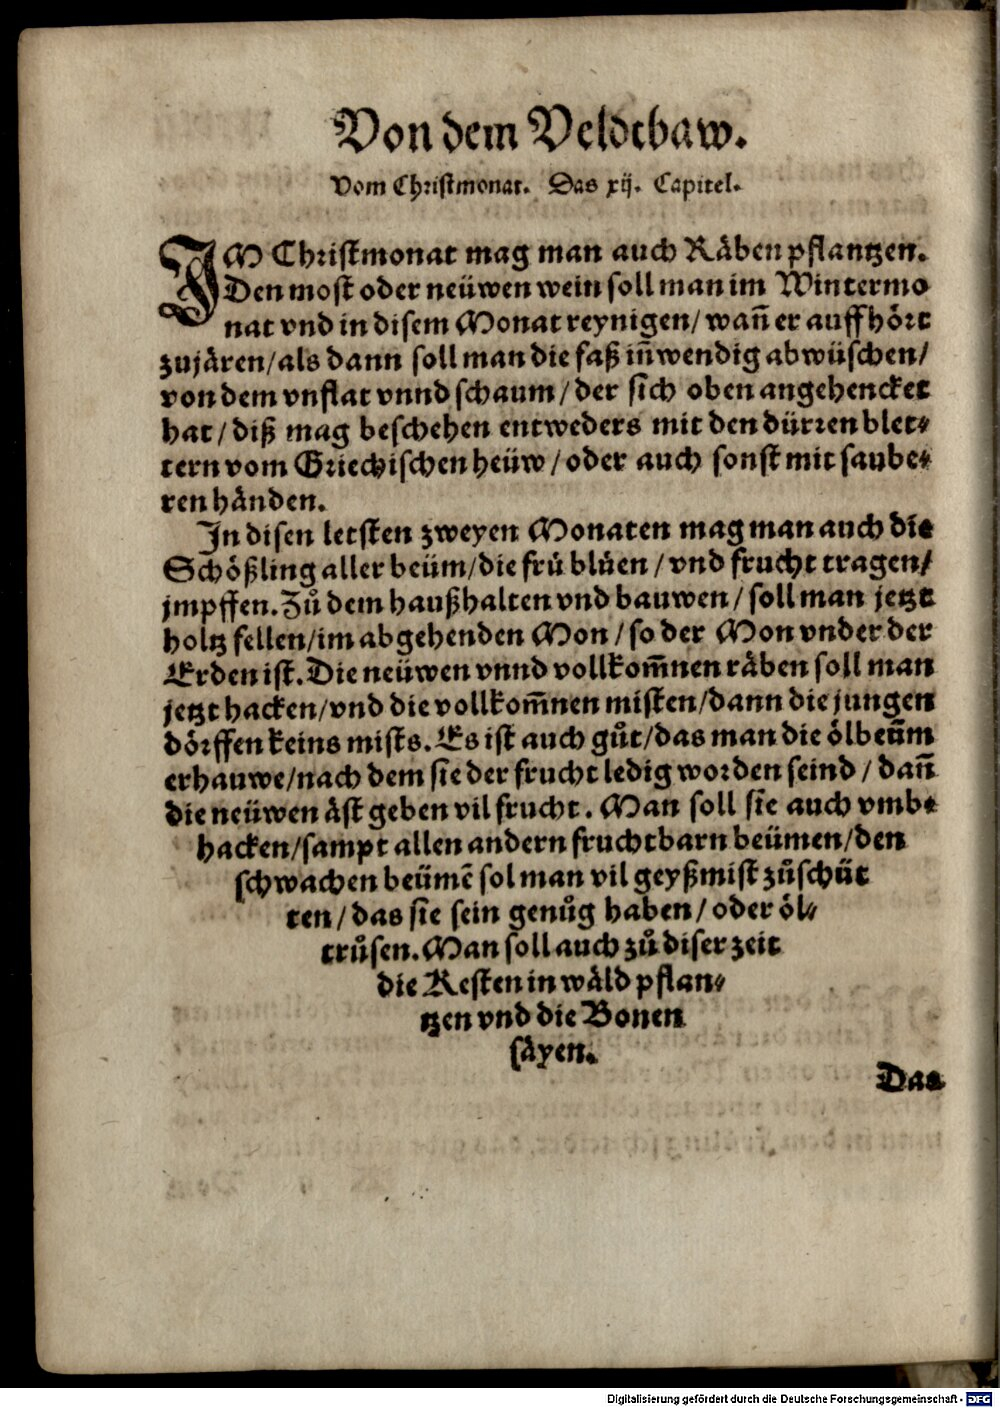 Von dem Veldtbaw.
Vom Christmonat. Das xij. Capitel.
IM Christmonat mag man auch Räben pflantzen.
Den most oder neüwen wein soll man im Wintermo
nat vnd in disem Monat reynigen/ wañ er auffhört
zujären/ als dann soll man die faß iñwendig abwüschen/
von dem vnflat vnnd schaum/ der sich oben angehencket
hat/ diß mag beschehen entweders mit den dürren blet⸗
tern vom Griechischen heüw/ oder auch sonst mit saube⸗
ren händen.
In disen letsten zweyen Monaten mag man auch die
Schößling aller beüm/ die frü blüen/ vnd frucht tragen/
jmpffen. Zů dem haußhalten vnd bauwen/ soll man jetzt
holtz fellen/ im abgehenden Mon/ so der Mon vnder der
Erden ist. Die neüwen vnnd vollkom̃nen räben soll man
jetzt hacken/ vnd die vollkom̃nen misten/ dann die jungen
dörffen keins mists. Es ist auch gůt/ das man die ölbeüm
erhauwe/ nach dem sie der frucht ledig worden seind/ dañ
die neüwen äst geben vil frucht. Man soll sie auch vmb⸗
hacken/ sampt allen andern fruchtbarn beümen/ den
schwachen beümẽ sol man vil geyßmist zůschüt
ten/ das sie sein genůg haben/ oder öl⸗
trůsen. Man soll auch zů diser zeit
die Kesten in wäld pflan⸗
tzen vnd die Bonen
säyen.
Das
Digitalisierung gefördert durch die Deutsche Forschungsgemeinschaft - DFG